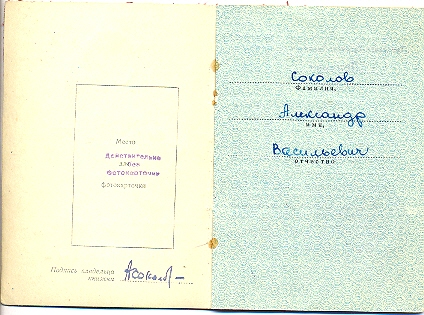 Место
Действительно
без
фотокарточки
фотокарточки
Подпись владельца
книжки
Соколов
Фамилия,
Александр
имя,
Васильевич
отчество